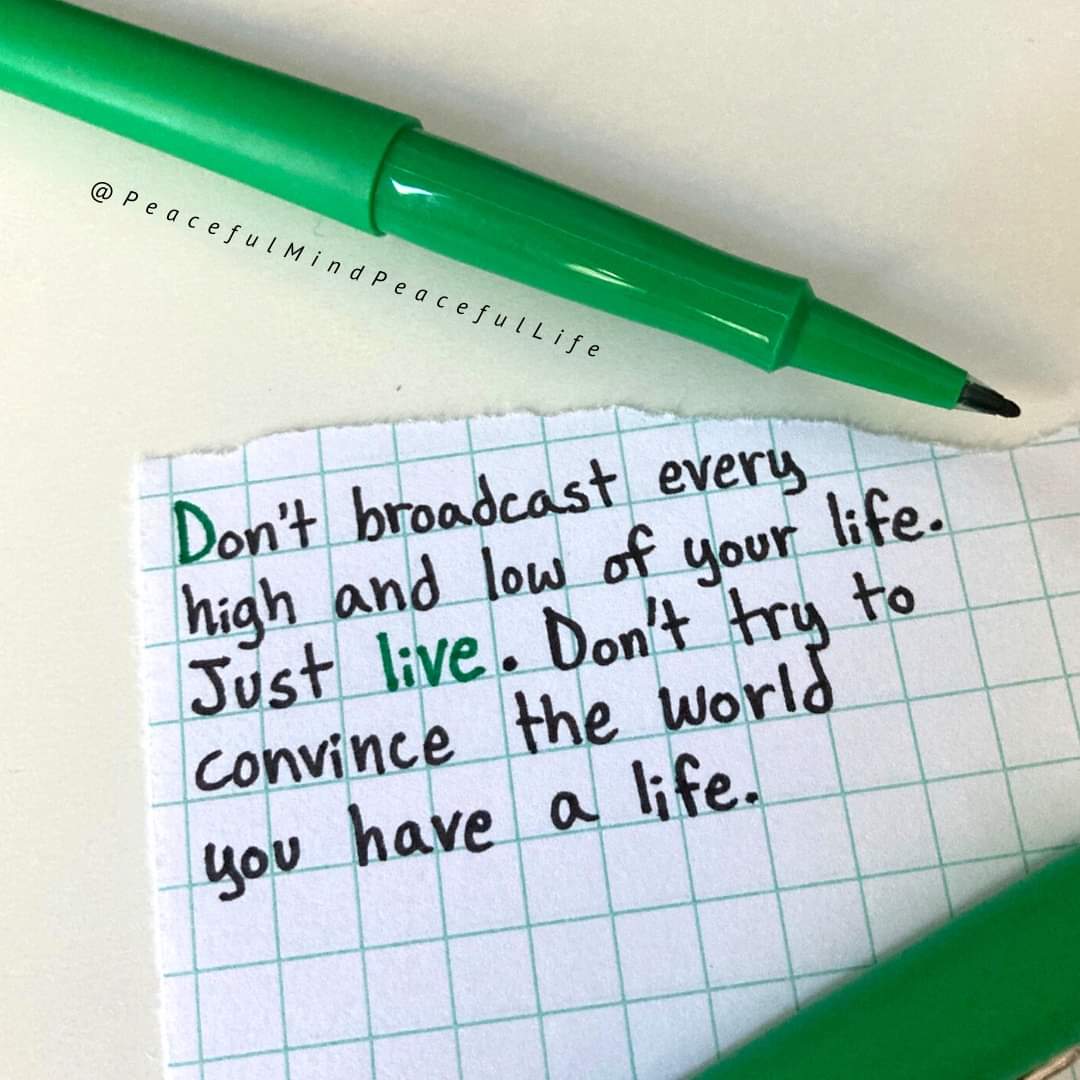 @PeacefulMindPeacefulLife
Don't broadcast every
high and low of your life.
Just live. Don't try to
convince the world
you have a life.